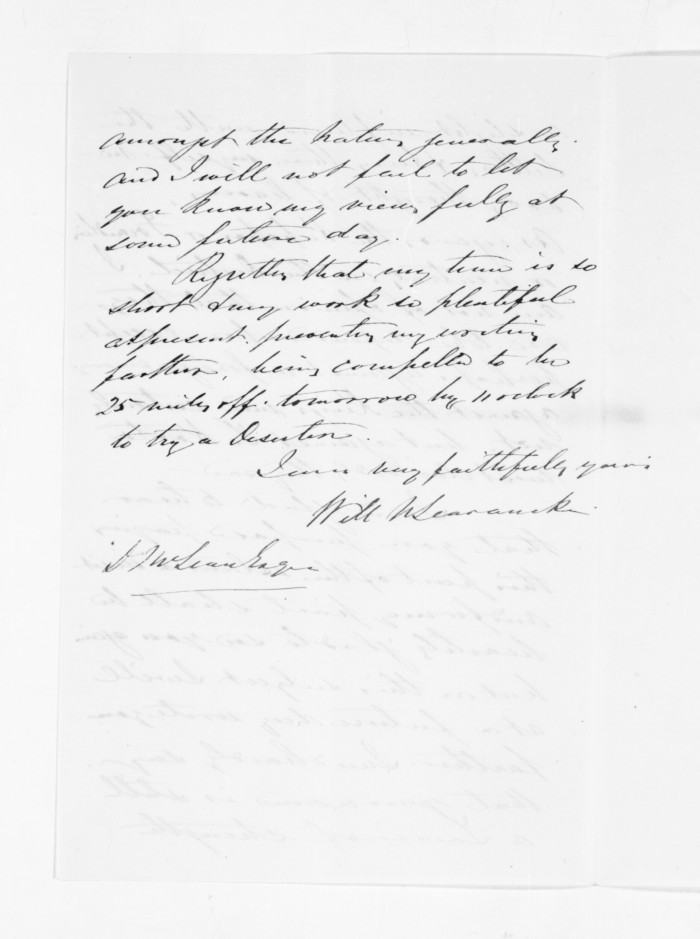 amongst the Natives generally.
and I will not fail to let
you know my views fully at
some future day.
Regretting that my time is so
short & my work so plentiful
at present. preventing my writing
farther, being compelled to be
25 miles off. tomorrow by 11 oclock
to try a Desertion.
I am very faithfully yours
Will N Searancke
D McLean Esqre